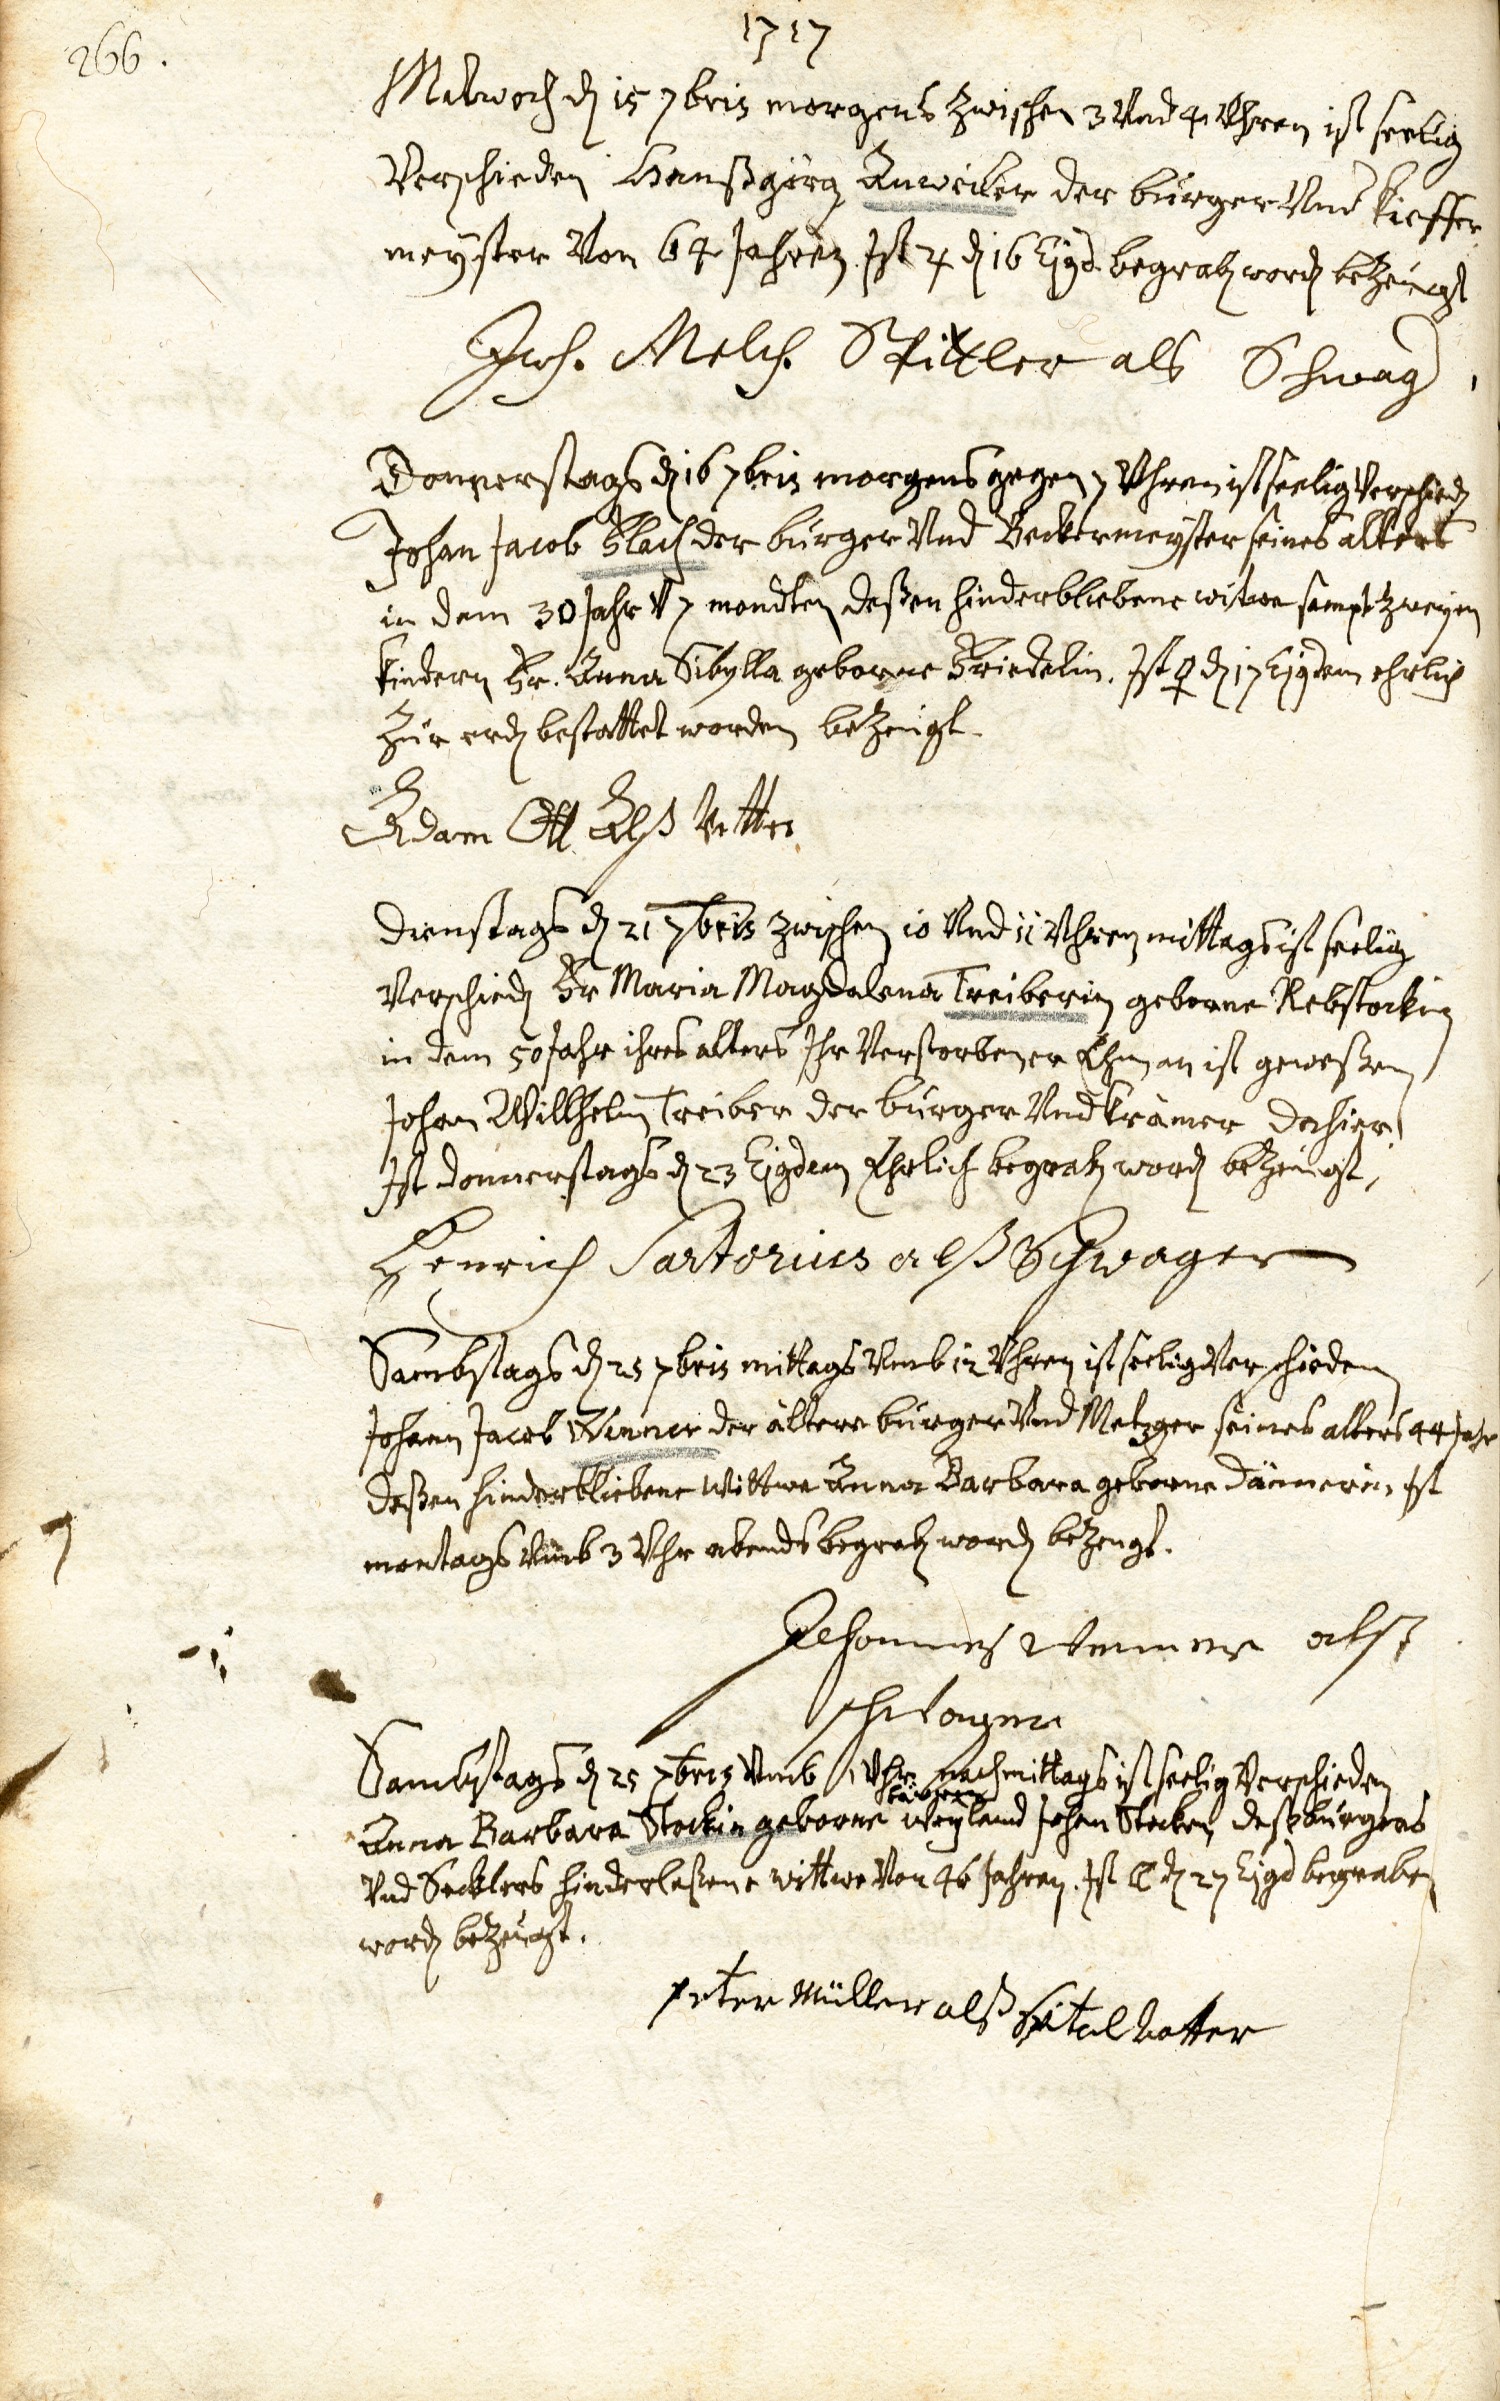 266.
1717
Mitwoch dẽ 15 7bris morgens zwischen 3 Vnd 4 Vhren ist seelig
Verschieden Hanßgörg Anweiler der burger Vnd Kieffer
meyster Von 64 Jahren Ist ♃ dẽ 16 Ejgd. begrab worde bezeugt
Joh. Melch. Spittler als Schwag
Donnerstags dẽ 16 7bris morgens gegen 7 Vhren ist seelig Verschied
Johan Jacob Flach der burger Vnd Beckermeyster seines alters
in dem 30 Jahr V 7 mondten deßen hinderbliebene witwe sampt zweyen
Kindern Fr. Anna Sibylla geborne Friedelin. Ist ♀ dẽ 17 Ejgdem ehrlich
zur erde bestattet worden bezeugt.
Adam Ott Alß Vetter
Dienstags dẽ 21 7bris zwischen 10 Vnd 11 Vhren mittags ist seelig
Verschied Fr Maria Magdalena Treiberin geborne Rebstockin
in dem 50 Jahr ihres alters Ihr Verstorbener Ehman ist geweßen
Johan Willhelm Treiber der burger Vnd Krämer dahier,
Ist donnerstags dẽ 23 Ejgdem Ehrlich begrab worde bezeugt,
Henrich Sartorius alß Schwager
Sambstags dẽ 25 7bris mittags Vmb 12 Vhren ist seelig Verschieden
Johann Jacob Wenner der ältere burger Vnd Metzger seines alters 44 Jahr
deßen hinderbliebene Wittwe Anna Barbara geborne ist
montags Vmb 3 Vhr abends begrab worde bezeugt.
Johannes Wenner alß
schwager
Sambstags dẽ 25 7bris Vmb 1 Vhr nachmittags ist seelig Verschieden
Anna Barbara Stockin geborne weyland Johan Stocken deß burgers
Vnd Secklers hinderlaßene wittwe Von 46 Jahren. Ist ☾ dẽ 27 Ejgd begraben
worde bezeugt.
Peter Müller alß Spital Vatter